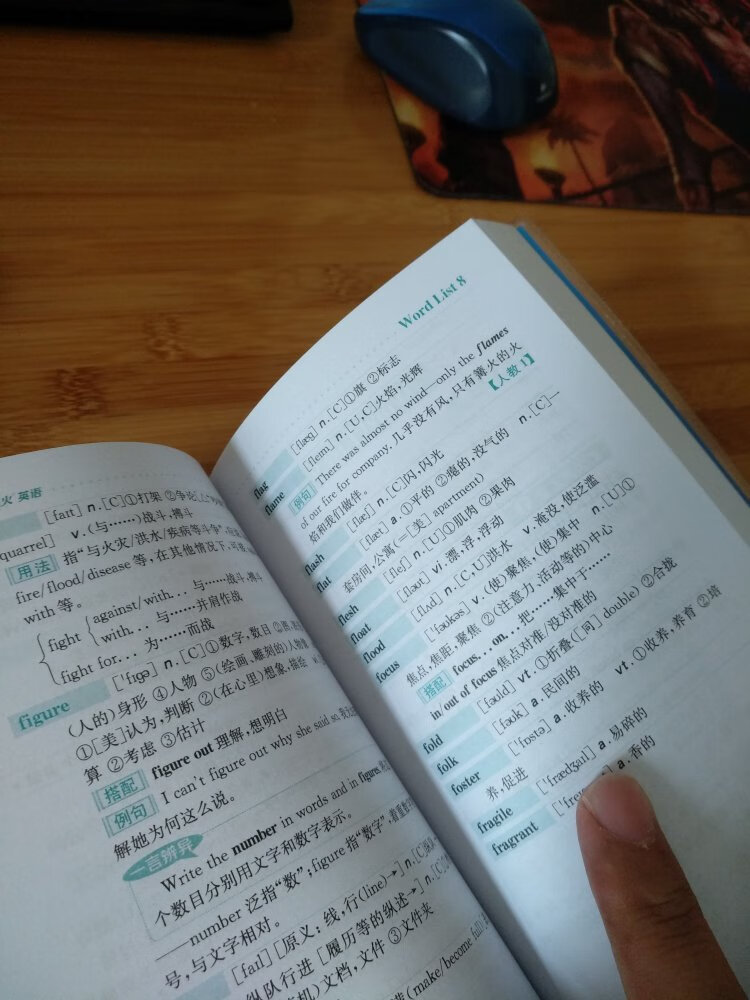 火 英语
[faɪt] n.[C]①打架 ②争论
quarrel] v.(与……)战斗,搏斗
用法 指“与火灾/洪水/疾病等斗争”
fire/flood/disease等,在其他情况下,可
with 等。
fight against/with… 与……战斗,搏斗
with… 与……并肩作战
fight for… 为……而战
figure ['fɪɡə] n.[C]①数字,数目
(人的)身形 ④人物 ⑤(绘画、雕刻的)人物像
①[美]认为,判断 ②(在心里)想象,描绘
算 ②考虑 ③估计
搭配 figure out 理解,想明白
例句 I can't figure out why she said so.
解她为何这么说。
一言辨异
Write the number in words and in figures.
个数目分别用文字和数字表示。
number 泛指“数”;figure 指“数字”
号,与文字相对。
[faɪl] [原义:线,行(line)→] n.[C]
纵队行进 [履历等的纵述→] n.
机)文档,文件 ③文件夹
(make/become full)
Word List 8
flag [flæɡ] n.[C]①旗 ②标志
flame [fleɪm] n.[U,C]火焰,光辉
例句 There was almost no wind—only the flames
of our fire for company. 几乎没有风,只有篝火的火
焰和我们做伴。 【人教1】
flash [flæʃ] n.[C]闪,闪光
flat [flæt] a.①平的 ②瘪的,没气的 n.[C]一
套房间,公寓(=[美] apartment)
flesh [fleʃ] n.[U]①肌肉 ②果肉
float [fləʊt] vi.漂,浮,浮动
flood [flʌd] n.[C,U]洪水 v.淹没,使泛滥
focus ['fəʊkəs] v.(使)聚焦,(使)集中 n.[U]①
焦点,焦距,聚焦 ②(注意力、活动等的)中心
搭配 focus…on…把……集中于……
in/out of focus 焦点对准/没对准的
fold [fəʊld] vt.①折叠([同] double) ②合拢
folk [fəʊk] a.民间的
foster ['fɒstə] a.收养的 vt.①收养,养育 ②培
养,促进
fragile ['frædʒaɪl] a.易碎的
fragrant a.香的